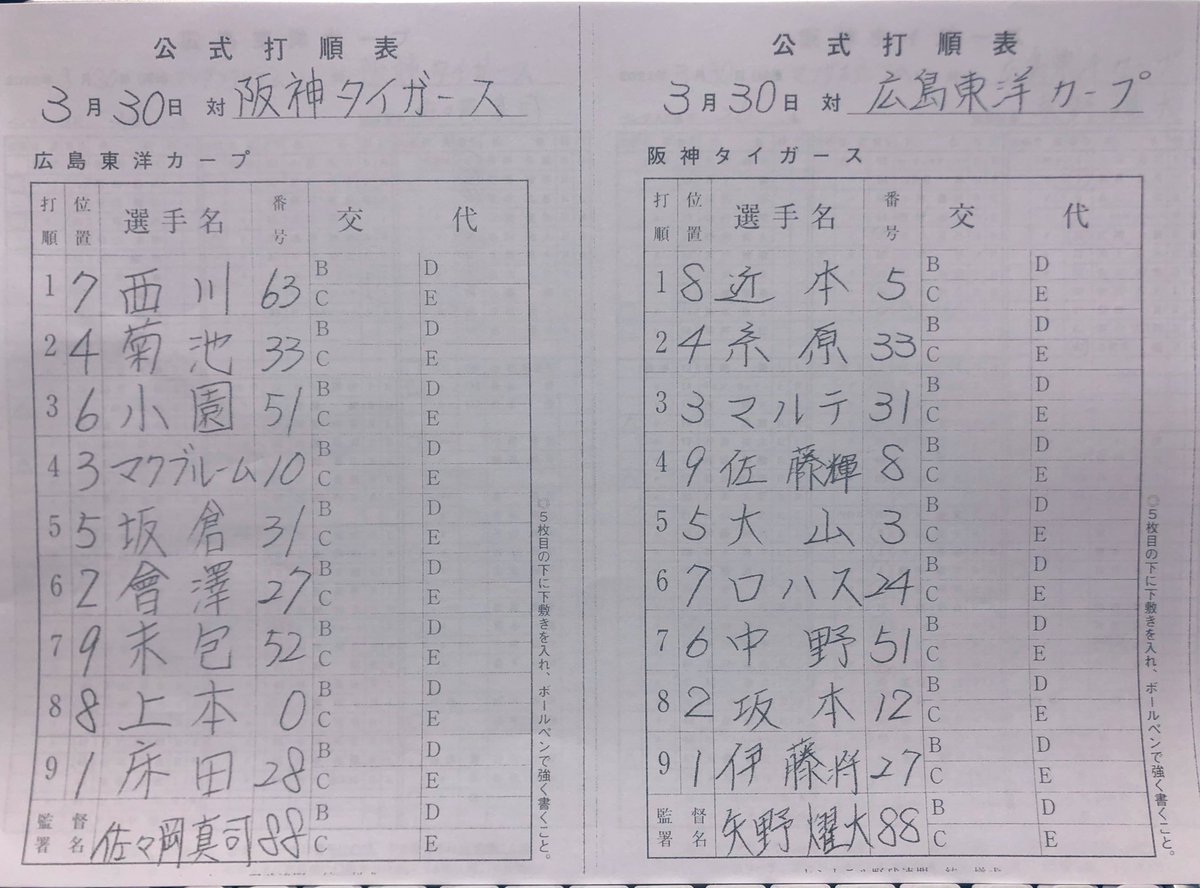 公式打順表
3月30日 対 阪神タイガース
広島東洋カープ
打順 位置 選手名 番号 交代
1 7 西川 63 B D
C E
2 4 菊池 33 B D
C E
3 6 小園 51 B D
C E
4 3 マクブルーム 10 B D
C E
5 5 坂倉 31 B D
C E
6 2 會澤 27 B D
C E
7 9 末包 52 B D
C E
8 8 上本 0 B D
C E
9 1 床田 28 B D
C E
監督署名 佐々岡真司 88 B D
C E
◎5枚目の下に下敷きを入れ、ボールペンで強く書くこと。
公式打順表
3月30日 対 広島東洋カープ
阪神タイガース
打順 位置 選手名 番号 交代
1 8 近本 5 B D
C E
2 4 糸原 33 B D
C E
3 3 マルテ 31 B D
C E
4 9 佐藤輝 8 B D
C E
5 5 大山 3 B D
C E
6 7 ロハス 24 B D
C E
7 6 中野 51 B D
C E
8 2 坂本 12 B D
C E
9 1 伊藤将 27 B D
C E
監督署名 矢野燿大 88 B D
C E
◎5枚目の下に下敷きを入れ、ボールペンで強く書くこと。